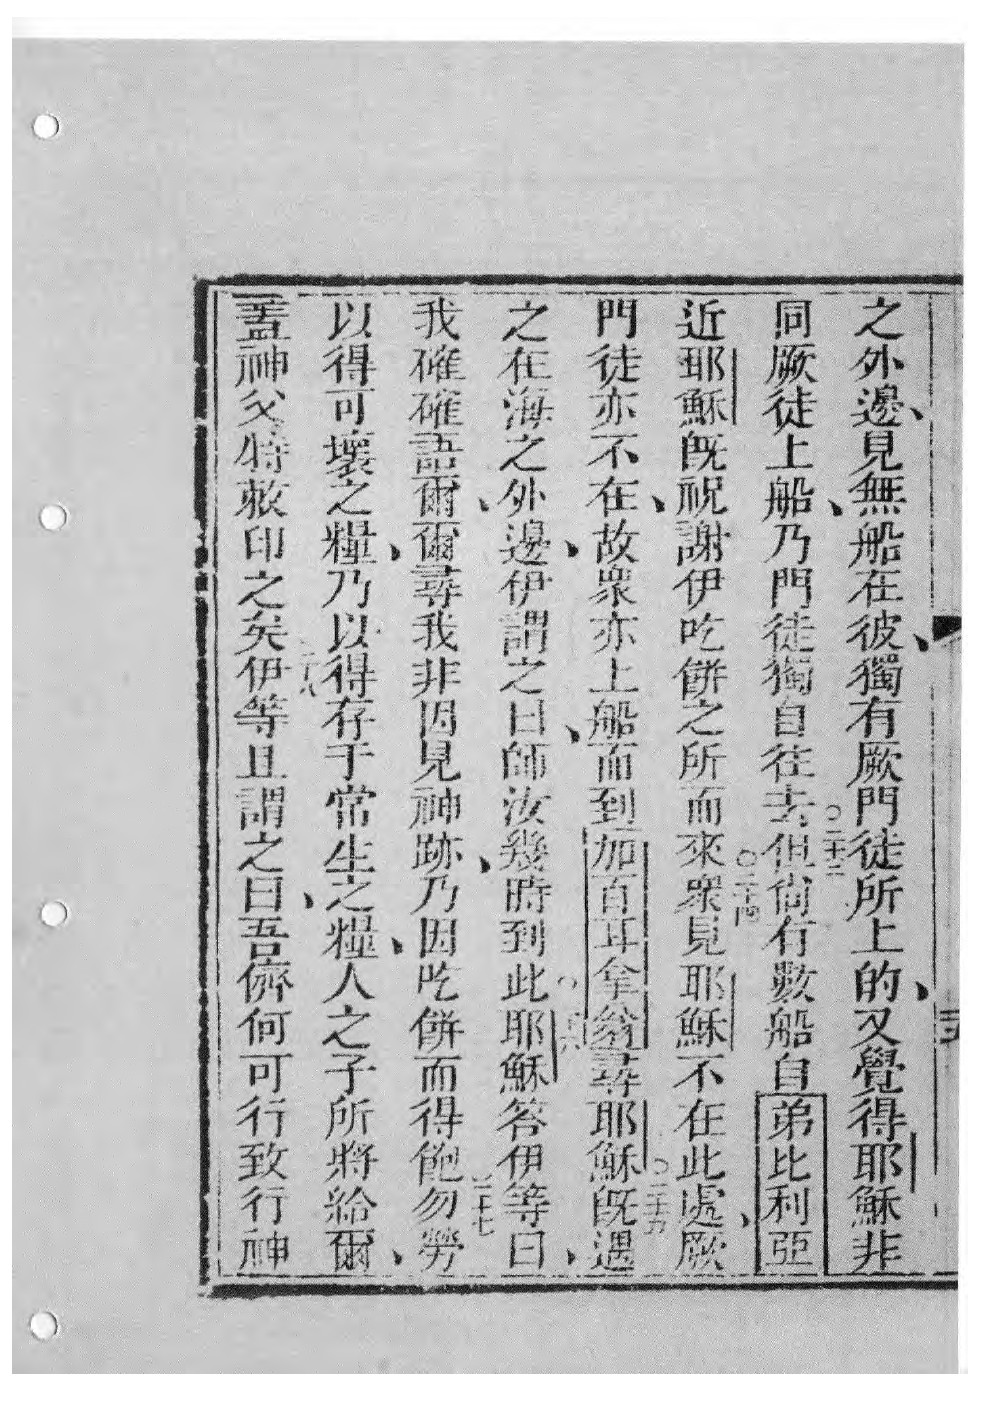 之外邊、見無船在彼、獨有厥門徒所上的、又覺得耶穌非
同厥徒上船、乃門徒獨自往去〇二十三但尚有數船自弟比利亞
近耶穌既祝謝伊吃餅之所而來〇二十四衆見耶穌不在此處、厥
門徒亦不在、故衆亦上船而到加百耳拿翁尋耶穌〇二十五既遇
之在海之外邊、伊謂之曰、師汝幾時到此〇二十六耶穌答伊等曰、
我確確語爾、爾尋我非因見神跡、乃因吃餅而得飽二十七勿勞
以得可壞之糧、乃以得存于常生之糧、人之子所將給爾、
蓋神父特敕印之矣二十八伊等且謂之曰、吾儕何可行致行神